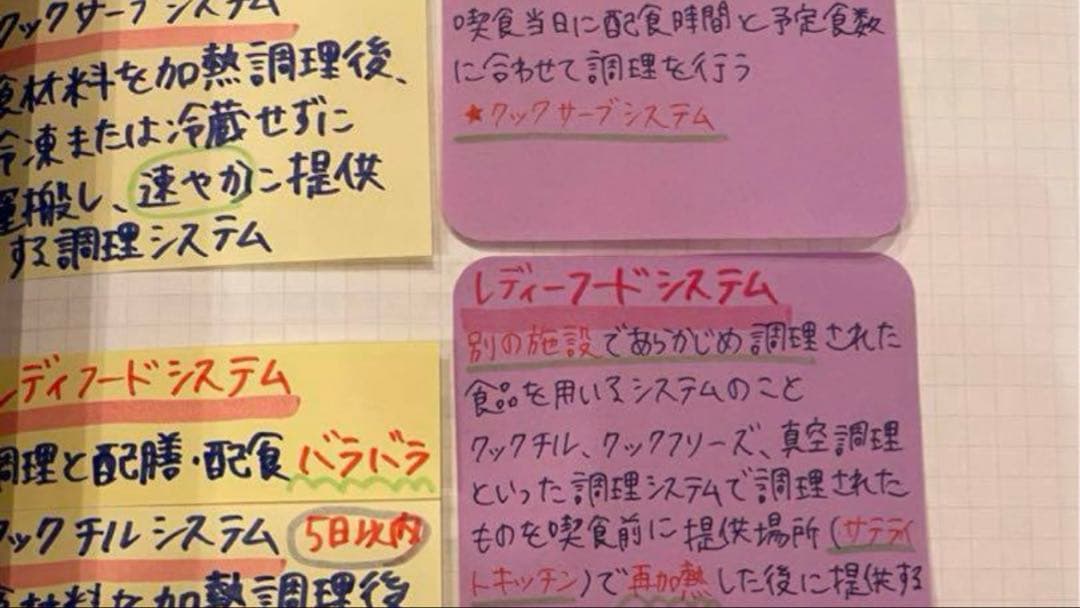 クックサーブシステム
食材料を加熱調理後、
冷凍または冷蔵せずに
運搬し、速やかに提供
する調理システム
レディフードシステム
調理と配膳・配食バラバラ
クックチルシステム 5日以内
食材料を加熱調理後
喫食当日に配食時間と予定食数
に合わせて調理を行う
★クックサーブシステム
レディーフードシステム
別の施設であらかじめ調理された
食品を用いるシステムのこと
クックチル、クックフリーズ、真空調理
といった調理システムで調理された
ものを喫食前に提供場所(サテライ
トキッチン)で再加熱した後に提供する